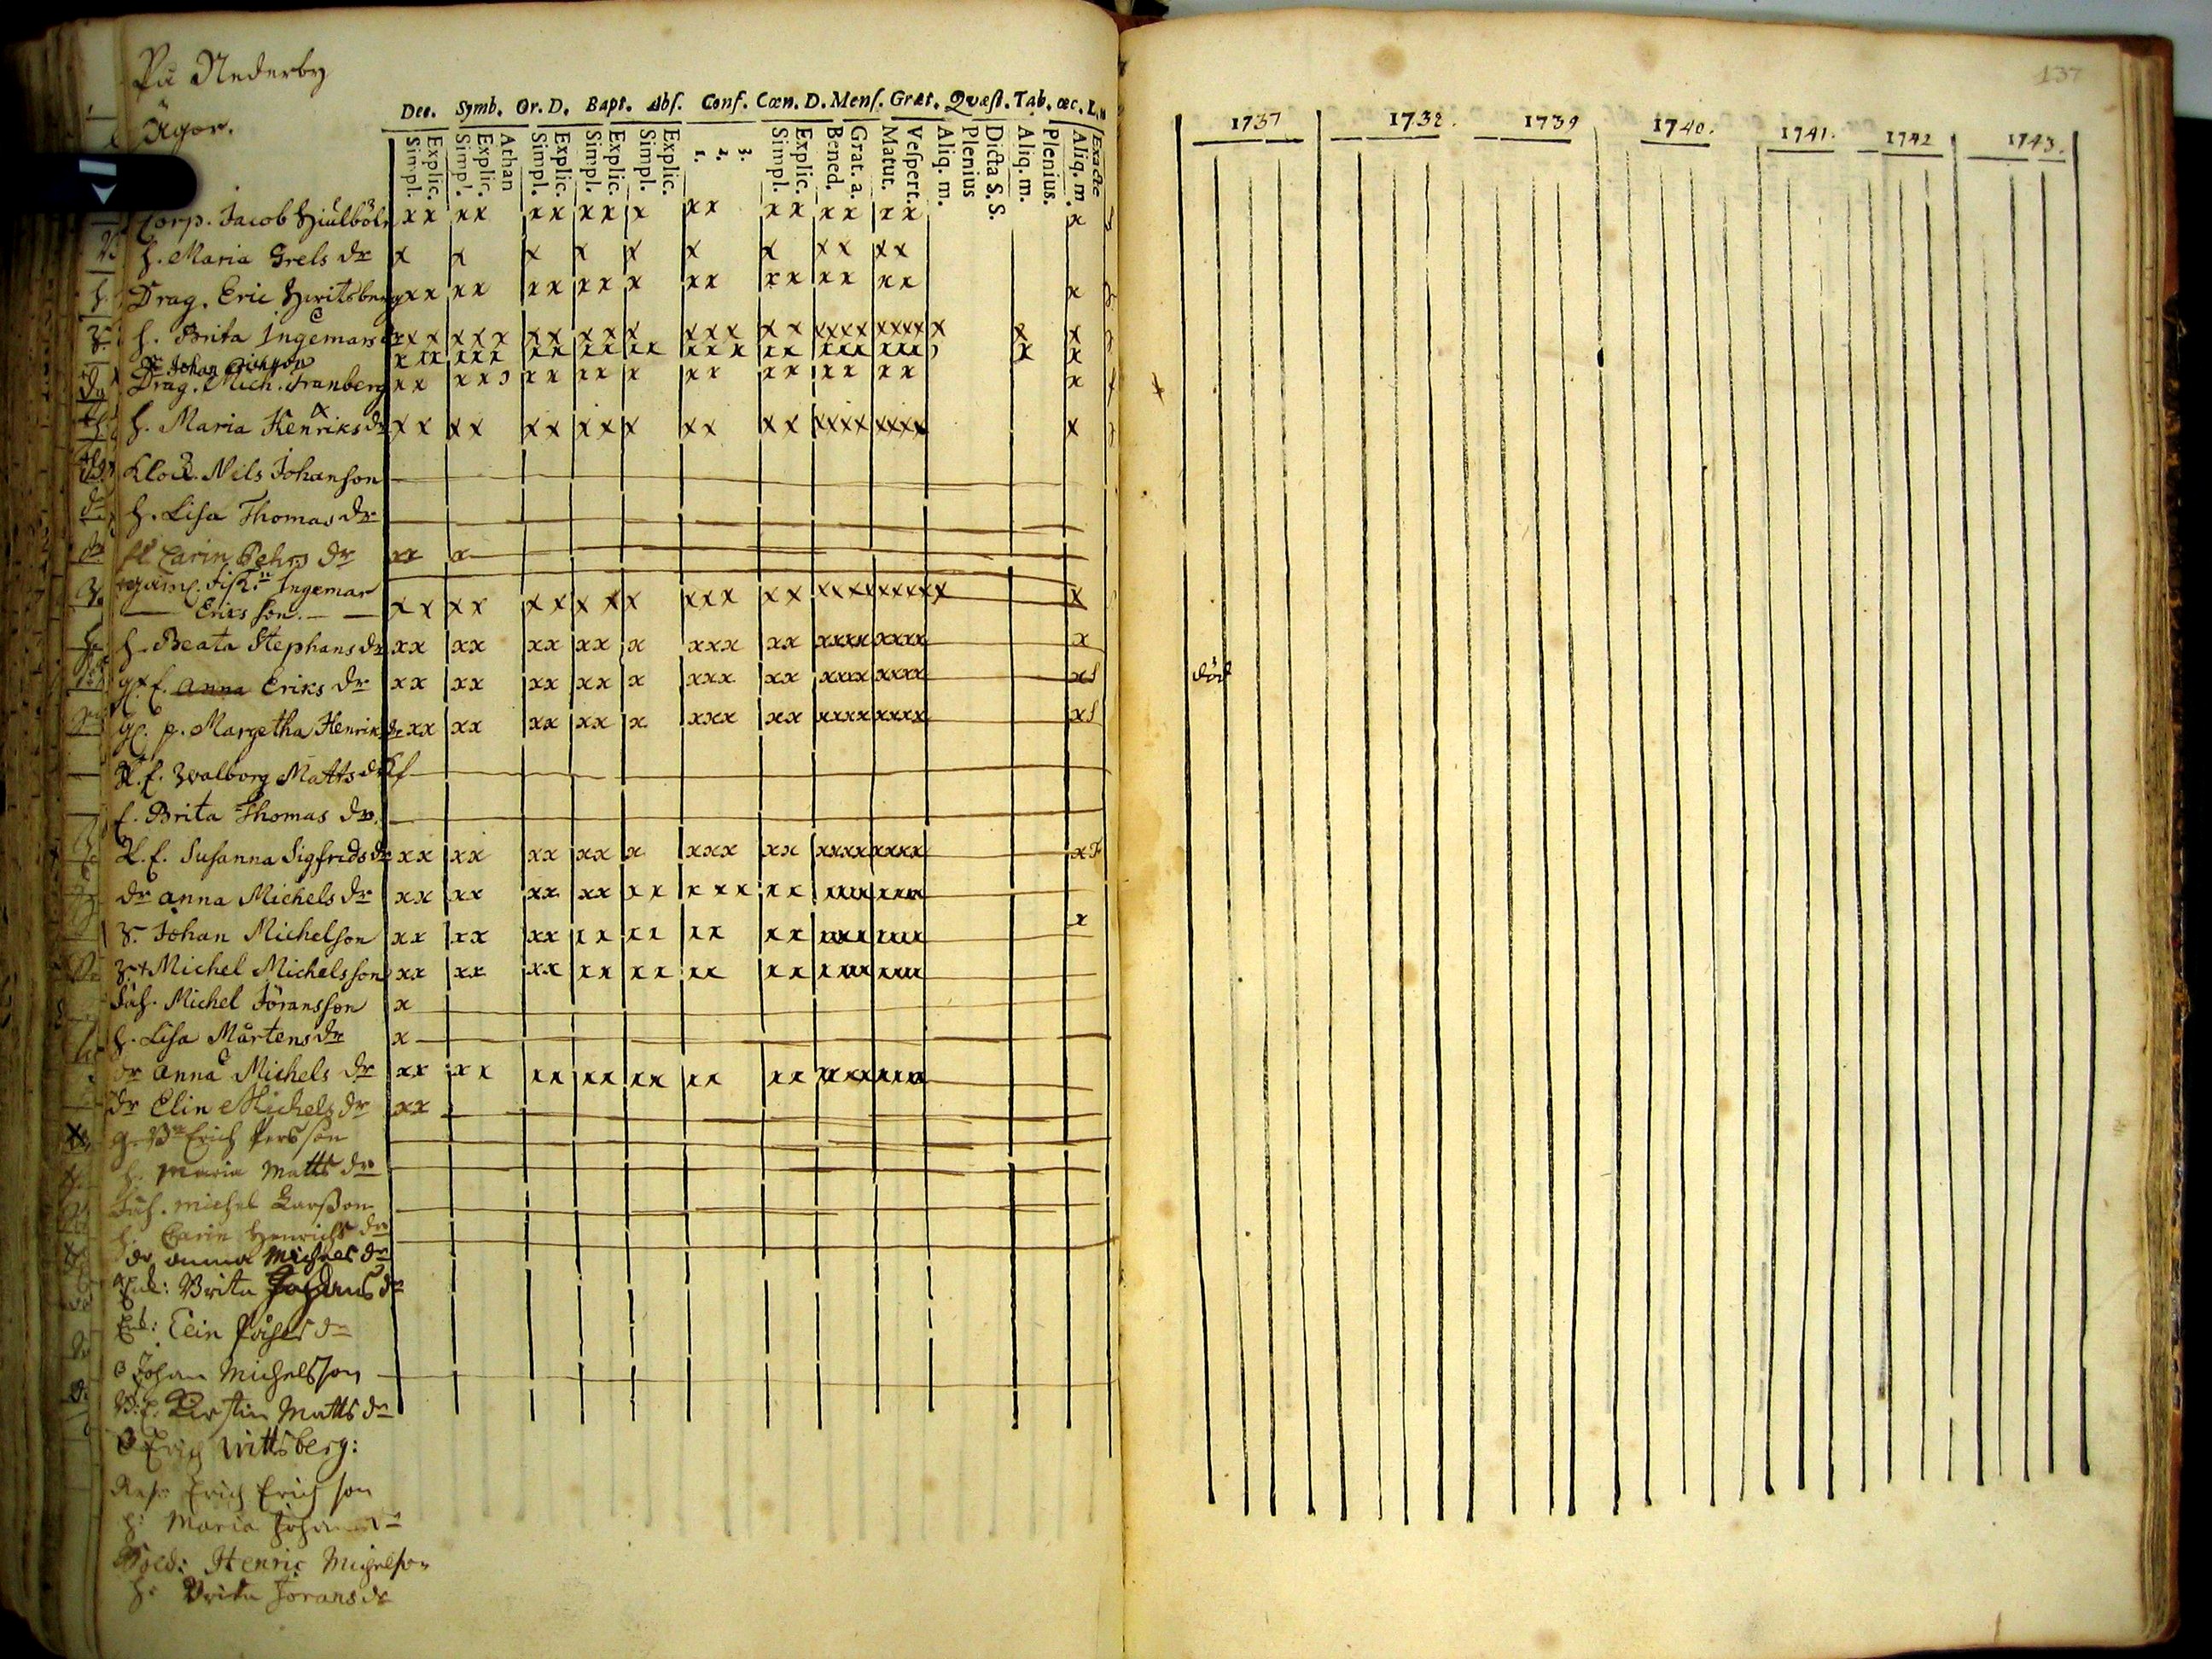 På Nederby
Ägor.
Dec. Symb. Or. D. Bapt. Abs. Conf. Cœn. D. Mens. Grat. Quæst. Tab. œc. L.
Simpl. Explic. Simpl. Explic. Athan Simpl. Explic. Simpl. Explic. Simpl. Explic. 1. 2. 3. Simpl. Explic. Bened. Grat. a. Matut. Vespert. Aliq. m. Plenius Dicta S. S. Aliq. m. Plenius. Aliq. m. Exacte
Corp. Jacob Hiulböle x x x x x x x x x x x x x x x x x x
h. Maria Grels dr x x x x x x x x x x x
Drag. Eric x x x x x x x x x x x x x x x x x x
h. Brita Ingemars dr x x x x x x x x x x x x x x x x x xxxx xxxx x x x
Johan Erichsson x x x x x x x x x x x x x x x x x x x x x x x x x x
Drag. Mich. Tranberg x x x x x x x x x x x x x x x x x x x
h. Maria Henriks dr x x x x x x x x x x x x x xxxx xxxx x
Klock. Nils Johanson
h. Lisa Thomas dr
Carin Pehrs dr xx x
Ingemar
Eriks son. x x x x x x x x x x x x x x xxxx xxxxx x
h. Beata Stephans dr xx xx xx xx x xxx xx xxxx xxxx x
Anna Eriks dr xx xx xx xx x xxx xx xxxx xxxx x
p. Margetha Henriks dr xx xx xx xx x xxx xx xxxx xxxx x
K. f. Walborg Matts dr
f. Brita Thomas dr.
K. f. Susanna Sigfrids dr xx xx xx xx x xxx xx xxxx xxxx x
dr Anna Michels dr xx xx xx xx x x x x x x x xxxx xxxx
S. Johan Michelson xx xx xx x x x x x x x x xxxx xxxx x
Michel Michelsson xx xx xx x x x x x x x x xxxx xxxx
Inh. Michel Jöransson x
h. Lisa Mårtens dr x
dr Anna Michels dr xx x x x x x x x x x x x x xxxx xxxx
dr Elin Michels dr xx
Erich Persson
h. Maria Matts dr
Inh. Michel Larsson
h. Carin Henrichs dr
dr Anna Michels dr
Enk: Brita Johans dr
Enk: Elin dr
Johan Michelsson
Kirstin Matts dr
Erich Wittsberg:
Erich Erichson
h: Maria Johans dr
Sold: Henric Michelson
h: Brita Jörans dr
137
1737 1738. 1739 1740. 1741. 1742 1743.
död